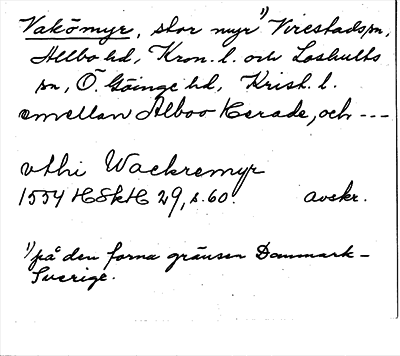 Vakömyr, stor myr¹) Virestads sn,
Allbo hd, Kron. l. och Loshults
sn, Ö. Göinge hd, Krist. l.
emellan Alboo Herade, och ---
vthi Wackremyr
1554 HSkH 29, s. 60. avskr.
¹) på den forna gränsen Danmark-
Sverige.